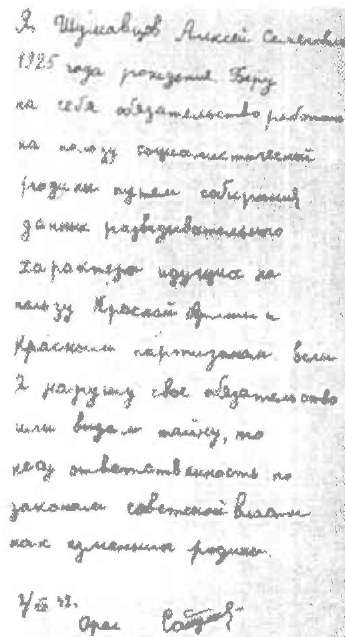 Я Шумавцов Алексей Семенович
1925 года рождения Беру
на себя обязательство работать
на пользу социалистической
родины путем собирания
данных разведывательного
характера идущих на
пользу Красной Армии и
красным партизанам Если
я нарушу свое обязательство
или выдам тайну, то
несу ответственность по
законам советской власти
как изменник родины.
Орел